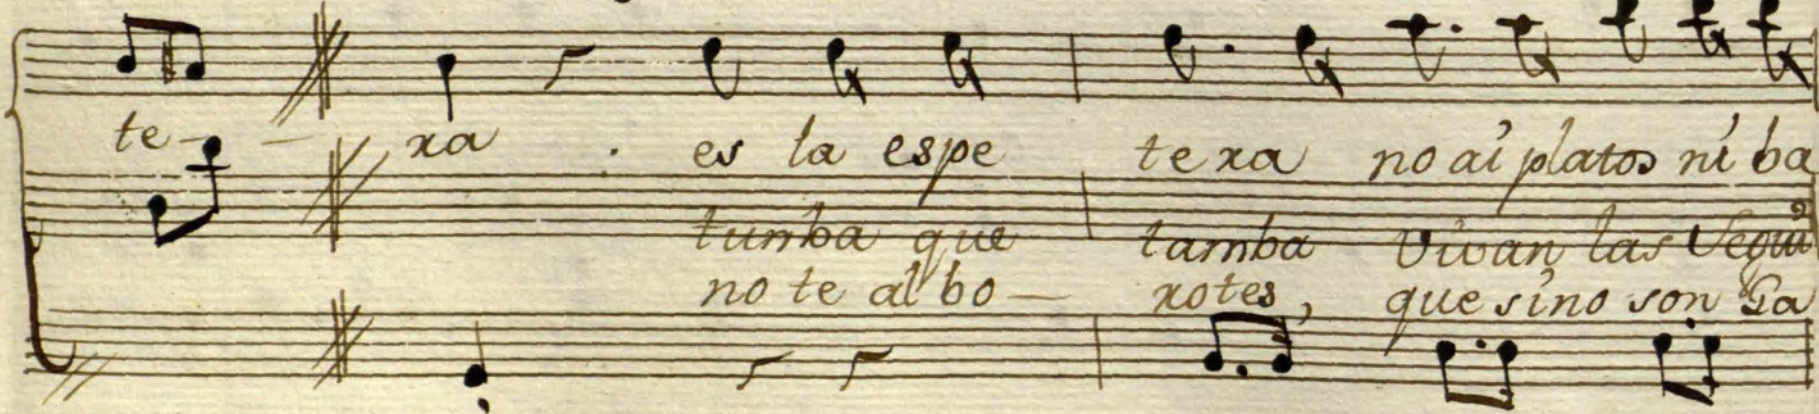 te - xa . es la espe texa no ai platos ni ba
tumba que tamba vivan las Segui
no te albo - xotes, que sino son Ga